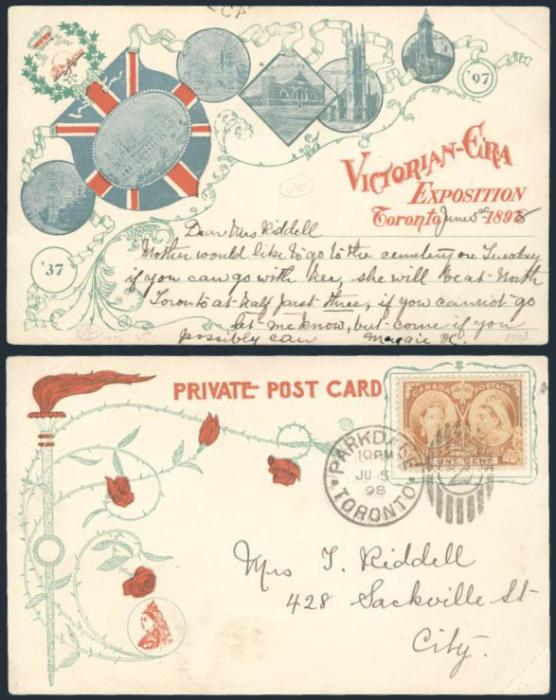 '97
VICTORIAN-ERA
EXPOSITION
Toronto June 5th 1898
Dear Mrs Riddell
'37
Mother would like to go to the cemetery on Tuesday
if you can go with her, she will be at North
Toronto at half past three, if you cannot go
let me know, but come if you
possibly can Maggie
PRIVATE POST CARD
CANADA POSTAGE
ONE CENT
PARKDALE
10PM
JU 5
98
TORONTO
2
Mrs T. Riddell
428 Sackville St
City.